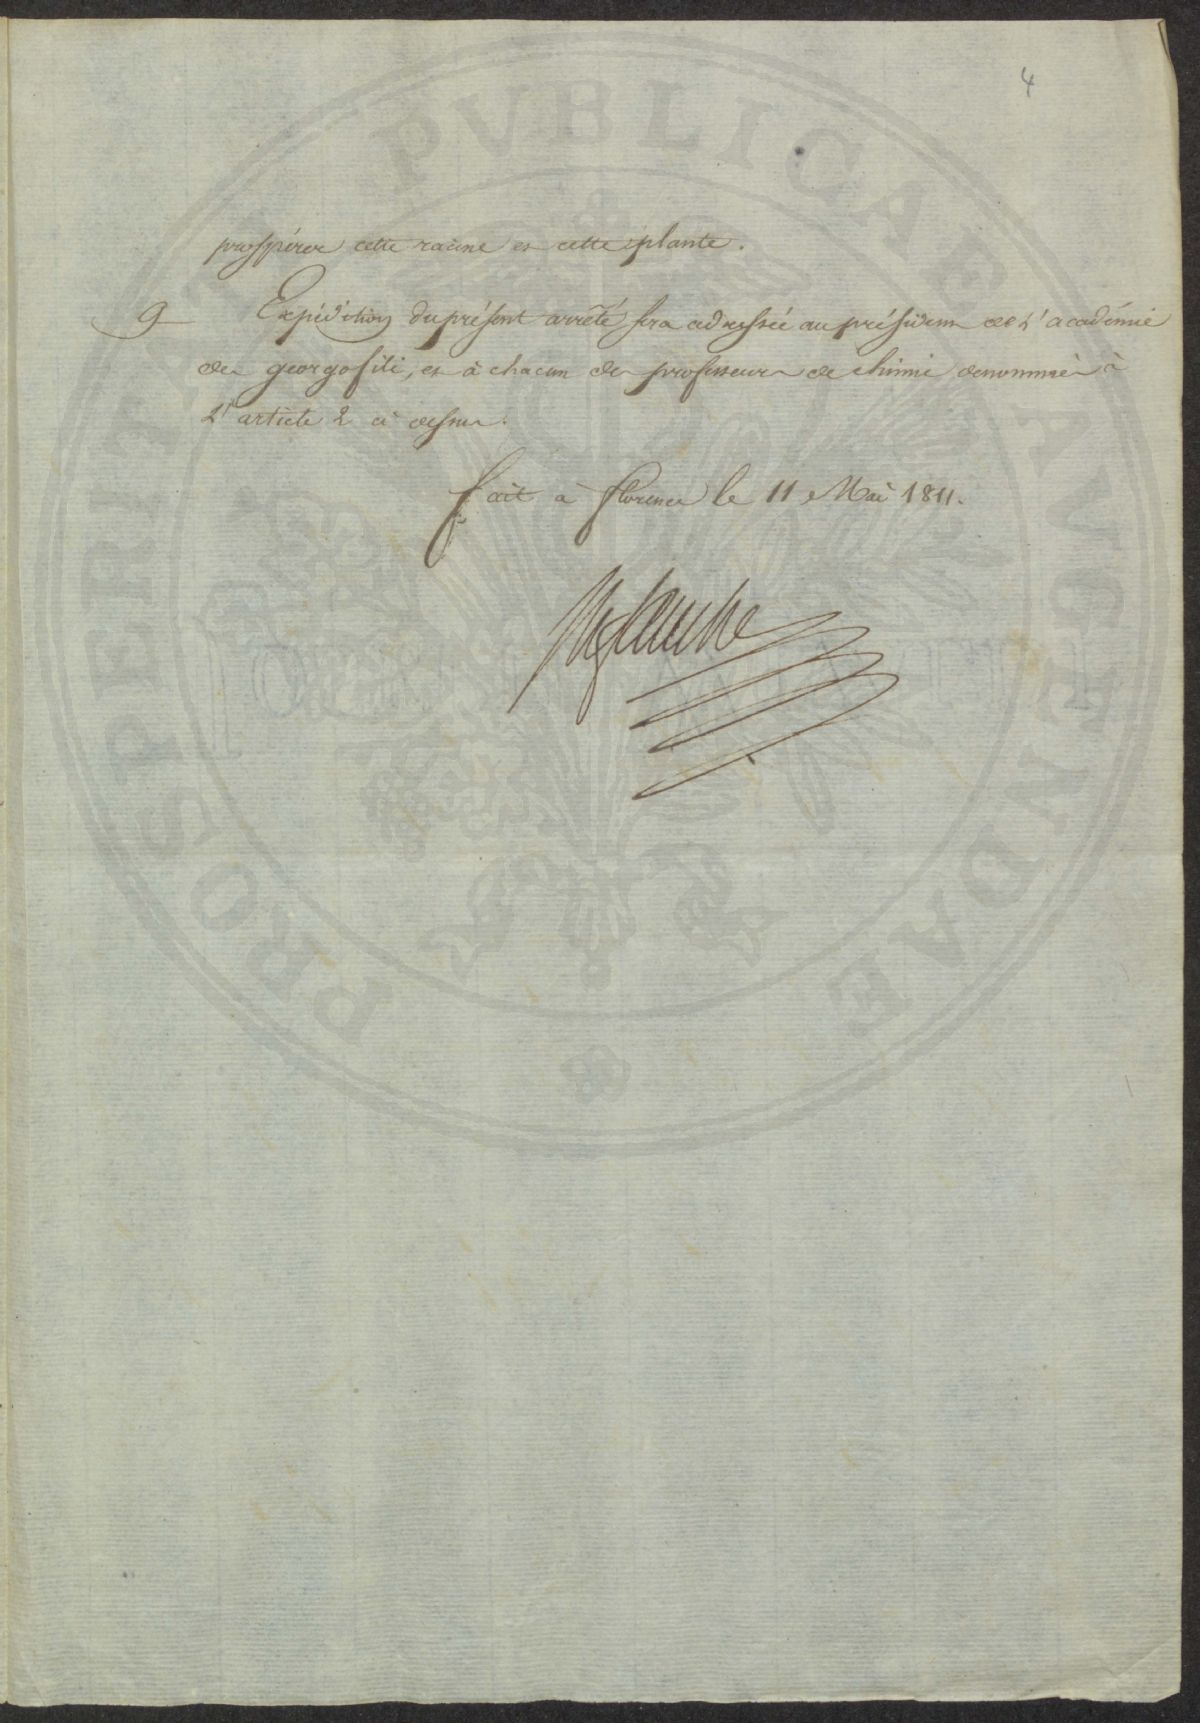 4
prospérer cette racine et cette plante.
9 Expédition du présent arrêté sera adressée au président de l'académie
des georgofili, et à chacun des professeurs de chimie denommés à
l'article 2 ci dessus.
fait à florence le 11 Mai 1811.
PROSPERITATI PVBLICAE AVGENDAE